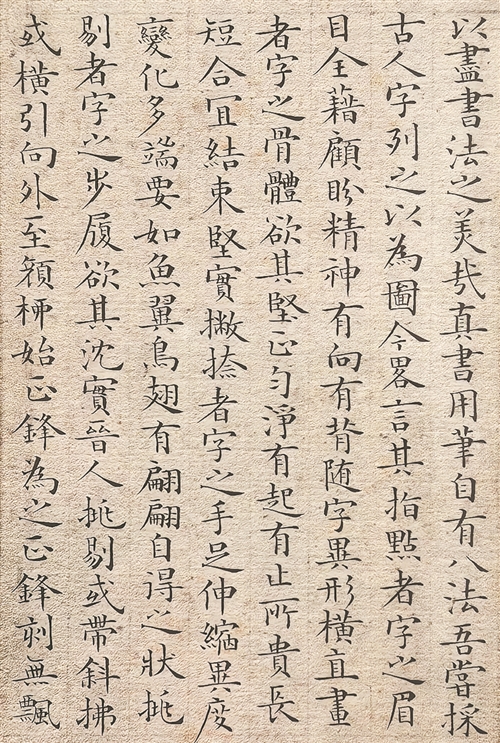 以盡書法之美哉真書用筆自有八法吾嘗採
古人字列之以為圖今畧言其指點者字之眉
目全藉顧盼精神有向有背随字異形橫直畫
者字之骨體欲其堅正匀淨有起有止所貴長
短合宜結束堅實撇捺者字之手足伸縮異度
變化多端要如魚翼鳥翅有翩翩自得之狀挑
剔者字之步履欲其沈實晉人挑剔或帶斜拂
或橫引向外至顏柳始正鋒為之正鋒則無飄